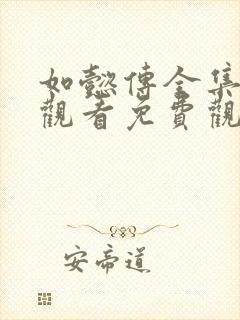 如懿傳全集
觀看免費觀
安帝道